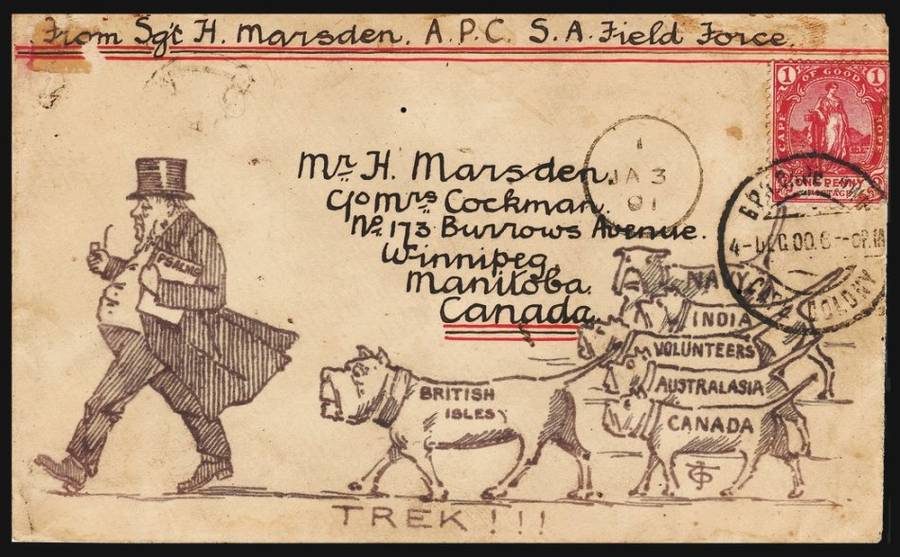 From Sgt H. Marsden. A.P.C. S.A. Field Force.
1 CAPE OF GOOD HOPE 1
ONE PENNY
POSTAGE
1
JA 3
01
Mr H. Marsden,
c/o Mrs Cockman.
No 173 Burrows Avenue.
Winnipeg
Manitoba
Canada
4-DEC.00.6
COLONY
PSALMS
NAVY
INDIA
VOLUNTEERS
AUSTRALASIA
CANADA
BRITISH
ISLES
TREK!!!